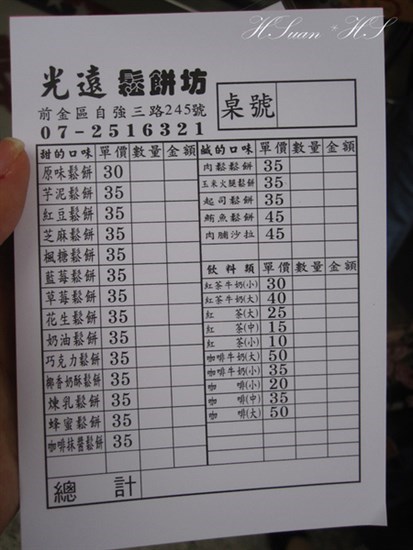 HSuan * HS
光遠 鬆餅坊
前金區自強三路245號
07-2516321
桌號
甜的口味 單價 數量 金額
原味鬆餅 30
芋泥鬆餅 35
紅豆鬆餅 35
芝麻鬆餅 35
楓糖鬆餅 35
藍莓鬆餅 35
草莓鬆餅 35
花生鬆餅 35
奶油鬆餅 35
巧克力鬆餅 35
椰香奶酥鬆餅 35
煉乳鬆餅 35
蜂蜜鬆餅 35
咖啡抹醬鬆餅 35
鹹的口味 單價 數量 金額
肉鬆鬆餅 35
玉米火腿鬆餅 35
起司鬆餅 35
鮪魚鬆餅 45
肉脯沙拉 45
飲料類 單價 數量 金額
紅茶牛奶(小) 30
紅茶牛奶(大) 40
紅 茶(大) 25
紅 茶(中) 15
紅 茶(小) 10
咖啡牛奶(大) 50
咖啡牛奶(小) 35
咖 啡(小) 20
咖 啡(中) 35
咖 啡(大) 50
總計